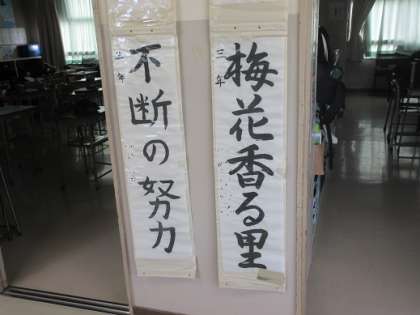 梅花香る里
三年
不断の努力